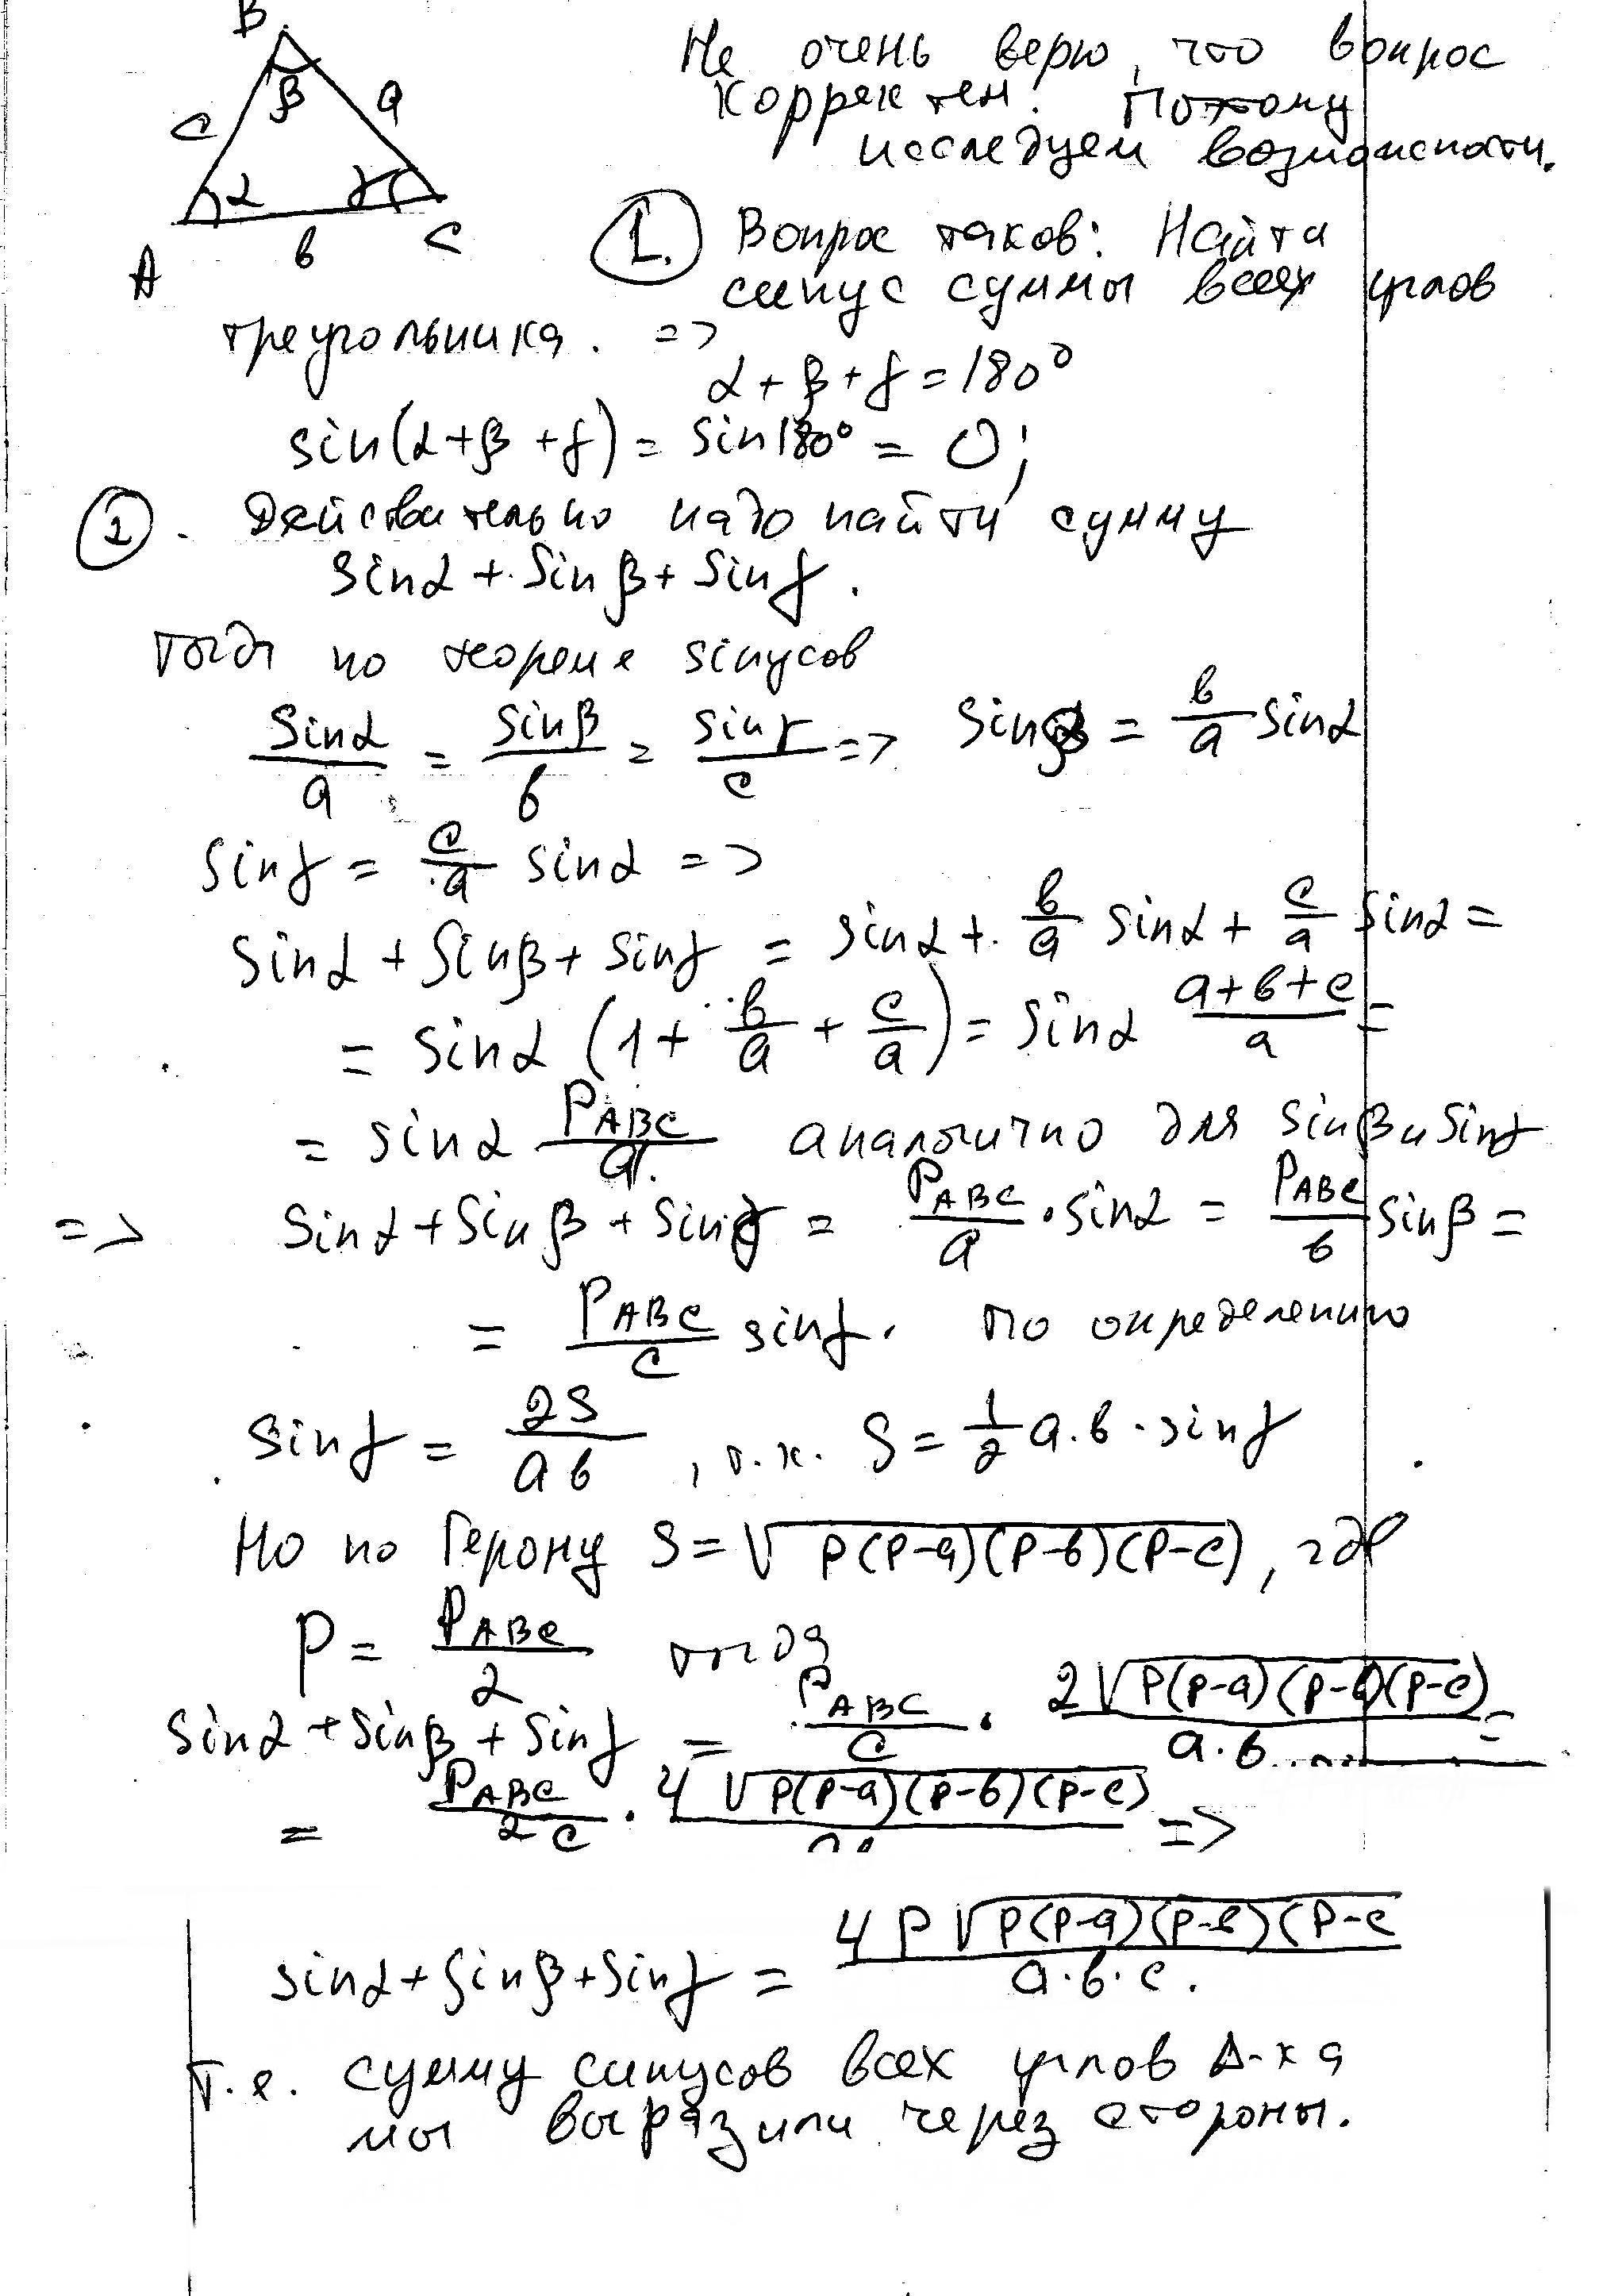 B
Не очень верю, что вопрос
β a
корректен! Потому
c
исследуем возможности.
α γ
b C
A
1. Вопрос таков: Найти
синус суммы всех углов
треугольника. =>
α + β + γ = 180°
sin(α+β+γ) = sin180° = 0;
2. Действительно надо найти сумму
sinα + sinβ + sinγ.
тогда по теореме sinусов
sinα/a = sinβ/b = sinγ/c => sinβ = b/a sinα
sinγ = c/a sinα =>
sinα + sinβ + sinγ = sinα + b/a sinα + c/a sinα =
= sinα (1 + b/a + c/a) = sinα (a+b+c)/a =
= sinα P_ABC/a. аналогично для sinβ и sinγ
=> sinα + sinβ + sinγ = P_ABC/a · sinα = P_ABC/b sinβ =
= P_ABC/c sinγ. По определению
sinγ = 2S/ab, т.к. S = 1/2 a·b·sinγ
Но по Герону S = √p(p-a)(p-b)(p-c), где
p = P_ABC/2 тогда
sinα + sinβ + sinγ = P_ABC/c · 2√p(p-a)(p-b)(p-c)/a·b =
= P_ABC/2c · 4√p(p-a)(p-b)(p-c) =>
sinα + sinβ + sinγ = 4p√p(p-a)(p-b)(p-c/a·b·c.
т.е. сумму синусов всех углов Δ-ка
мы выразили через стороны.